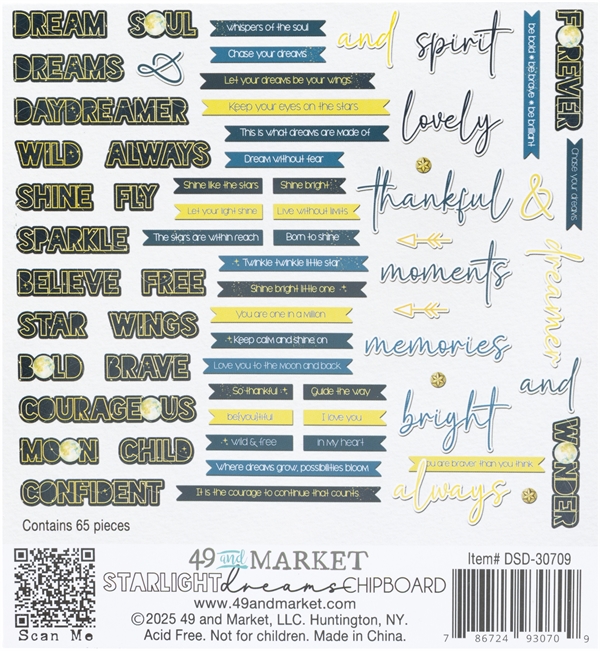 DREAM SOUL
DREAMS &
DAYDREAMER
WILD ALWAYS
SHINE FLY
SPARKLE
BELIEVE FREE
STAR WINGS
BOLD BRAVE
COURAGEOUS
MOON CHILD
CONFIDENT
whispers of the soul
Chase your dreams
Let your dreams be your wings
Keep your eyes on the stars
This is what dreams are made of
Dream without fear
Shine like the stars
Shine bright
Let your light shine
Live without limits
The stars are within reach
Born to shine
Twinkle twinkle little star
Shine bright little one
You are one in a million
Keep calm and shine on
Love you to the moon and back
So thankful
Guide the way
be{you}tiful
I love you
wild & free
in my heart
Where dreams grow, possibilities bloom
It is the courage to continue that counts
and spirit
lovely
thankful
moments
memories
bright
You are braver than you think
always
be bold • be brave • be brilliant
FOREVER
Chase your dreams
&
dreamer
and
WONDER
Contains 65 pieces
Scan Me
49 and MARKET
STARLIGHT dreams CHIPBOARD
www.49andmarket.com
©2025 49 and Market LLC. Huntington, NY.
Acid Free. Not for children. Made in China.
Item# DSD-30709
7 86724 93070 9